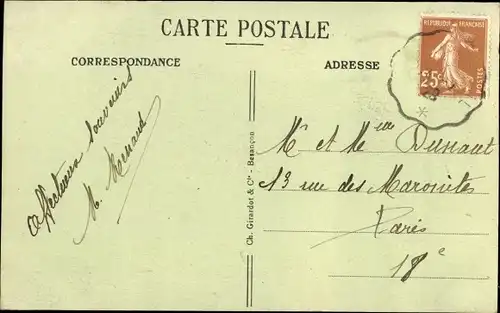 CARTE POSTALE
CORRESPONDANCE
ADRESSE
RÉPUBLIQUE FRANÇAISE
25c
POSTES
Affectueux Souvenirs
M.
Ch. Girardot & Cie - Besançon
Mr et Mme Dunaut
13 rue des Maronites
Paris
18e